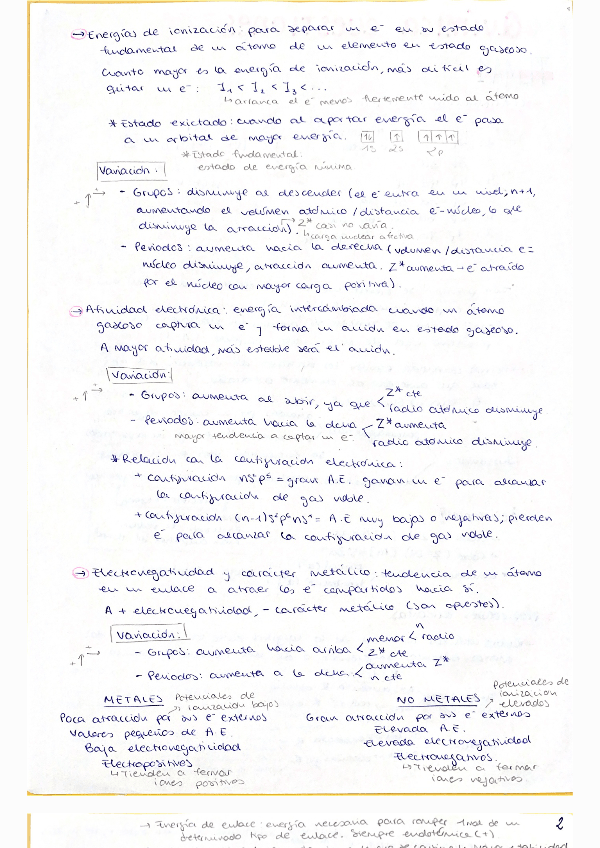 → Energías de ionización: para separar un e⁻ en su estado
fundamental de un átomo de un elemento en estado gaseoso.
Cuanto mayor es la energía de ionización, más difícil es
quitar un e⁻: I₁ < I₂ < I₃ < ...
↳ arranca el e⁻ menos fuertemente unido al átomo
* Estado exictado: cuando al aportar energía el e⁻ pasa
a un orbital de mayor energía.
1s 2s 2p
* Estado fundamental:
estado de energía mínima
Variación:
- Grupos: disminuye al descender (el e⁻ entra en un nivel, n+1,
aumentando el volúmen atómico / distancia e⁻-núcleo, lo que
disminuye la atracción) → Z* casi no varía.
↳ carga nuclear efectiva
- Periodos: aumenta hacia la derecha (volumen / distancia e⁻
núcleo disminuye, atracción aumenta. Z* aumenta → e⁻ atraído
por el núcleo con mayor carga positiva).
→ Afinidad electrónica: energía intercambiada cuando un átomo
gaseoso captura un e⁻ y forma un anión en estado gaseoso.
A mayor afinidad, más estable será el anión.
Variación:
- Grupos: aumenta al subir, ya que < Z* cte
radio atómico disminuye
- Periodos: aumenta hacia la dcha < Z* aumenta
mayor tendencia a captar un e⁻
radio atómico disminuye.
* Relación con la configuración electrónica:
+ configuración ns²p⁵ = gran A.E. ganan un e⁻ para alcanzar
la configuración de gas noble.
+ configuración (n-1)s²p⁶ns¹ = A.E muy bajas o negativas; pierden
e⁻ para alcanzar la configuración de gas noble.
→ Electronegatividad y carácter metálico: tendencia de un átomo
en un enlace a atraer los e⁻ compartidos hacia sí.
A + electronegatividad, - carácter metálico (son opuestos).
Variación:
n
- Grupos: aumenta hacia arriba < menor < radio
Z* cte
- Periodos: aumenta a la dcha < aumenta Z*
n cte
METALES → Potenciales de
ionización bajos
Poca atracción por sus e⁻ externos
Valores pequeños de A.E.
Baja electronegatividad
Electropositivos
↳ Tienden a formar
iones positivos
NO METALES → Potenciales de
ionización
elevados
Gran atracción por sus e⁻ externos
Elevada A.E.
Elevada electronegatividad
Electronegativos.
↳ Tienden a formar
iones negativos.
2
→ Energía de enlace: energía necesaria para romper 1 mol de un
determinado tipo de enlace. Siempre endotérmica (+)